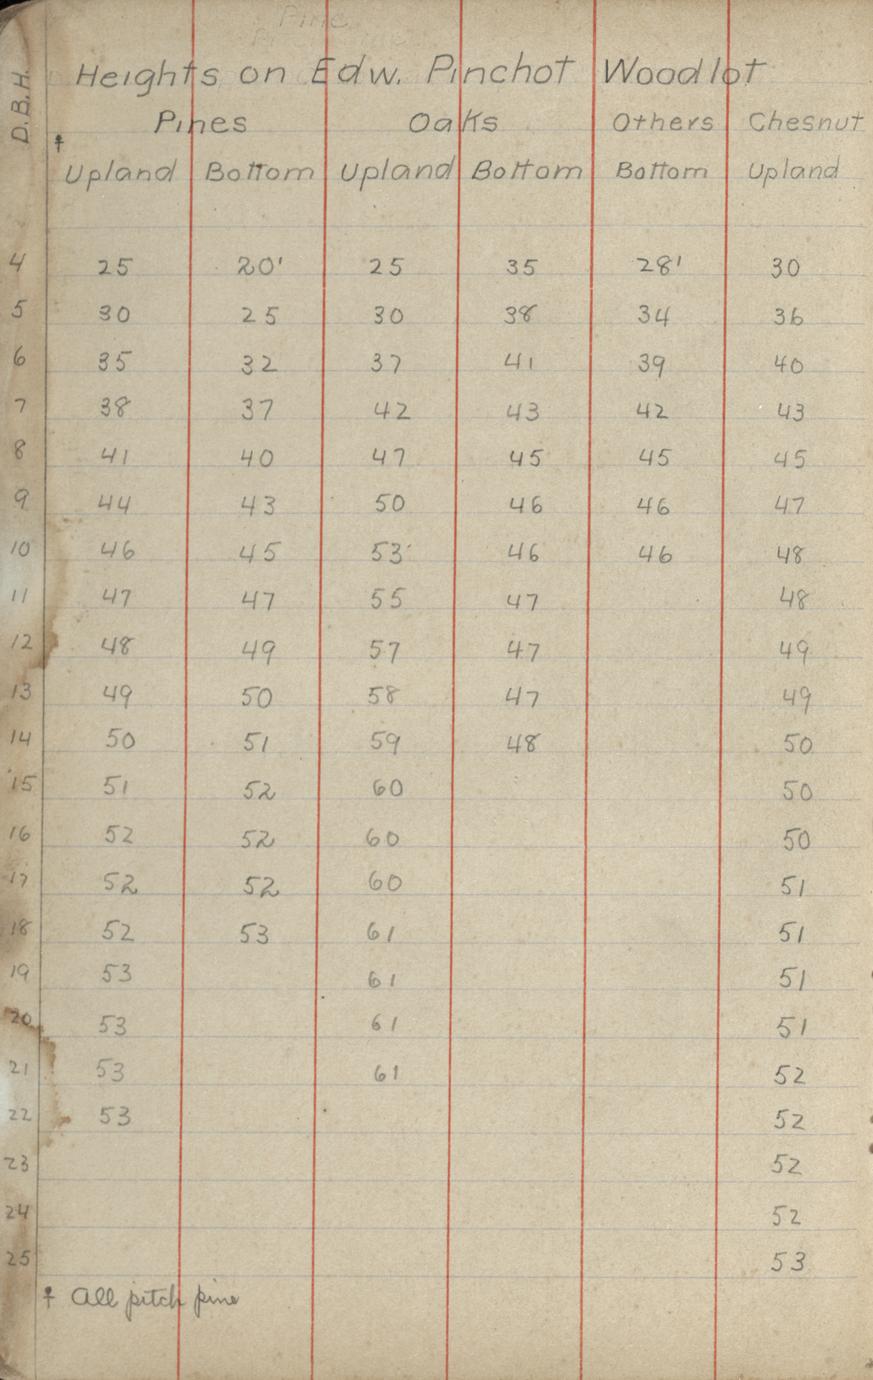 Pine
Heights on Edw. Pinchot Woodlot
D.B.H. ☨ Pines Oaks Others Chesnut
Upland Bottom Upland Bottom Bottom Upland
4 25 20' 25 35 28' 30
5 30 25 30 38 34 36
6 35 32 37 41 39 40
7 38 37 42 43 42 43
8 41 40 47 45 45 45
9 44 43 50 46 46 47
10 46 45 53 46 46 48
11 47 47 55 47 48
12 48 49 57 47 49
13 49 50 58 47 49
14 50 51 59 48 50
15 51 52 60 50
16 52 52 60 50
17 52 52 60 51
18 52 53 61 51
19 53 61 51
20 53 61 51
21 53 61 52
22 53 52
23 52
24 52
25 53
☨ All pitch pine